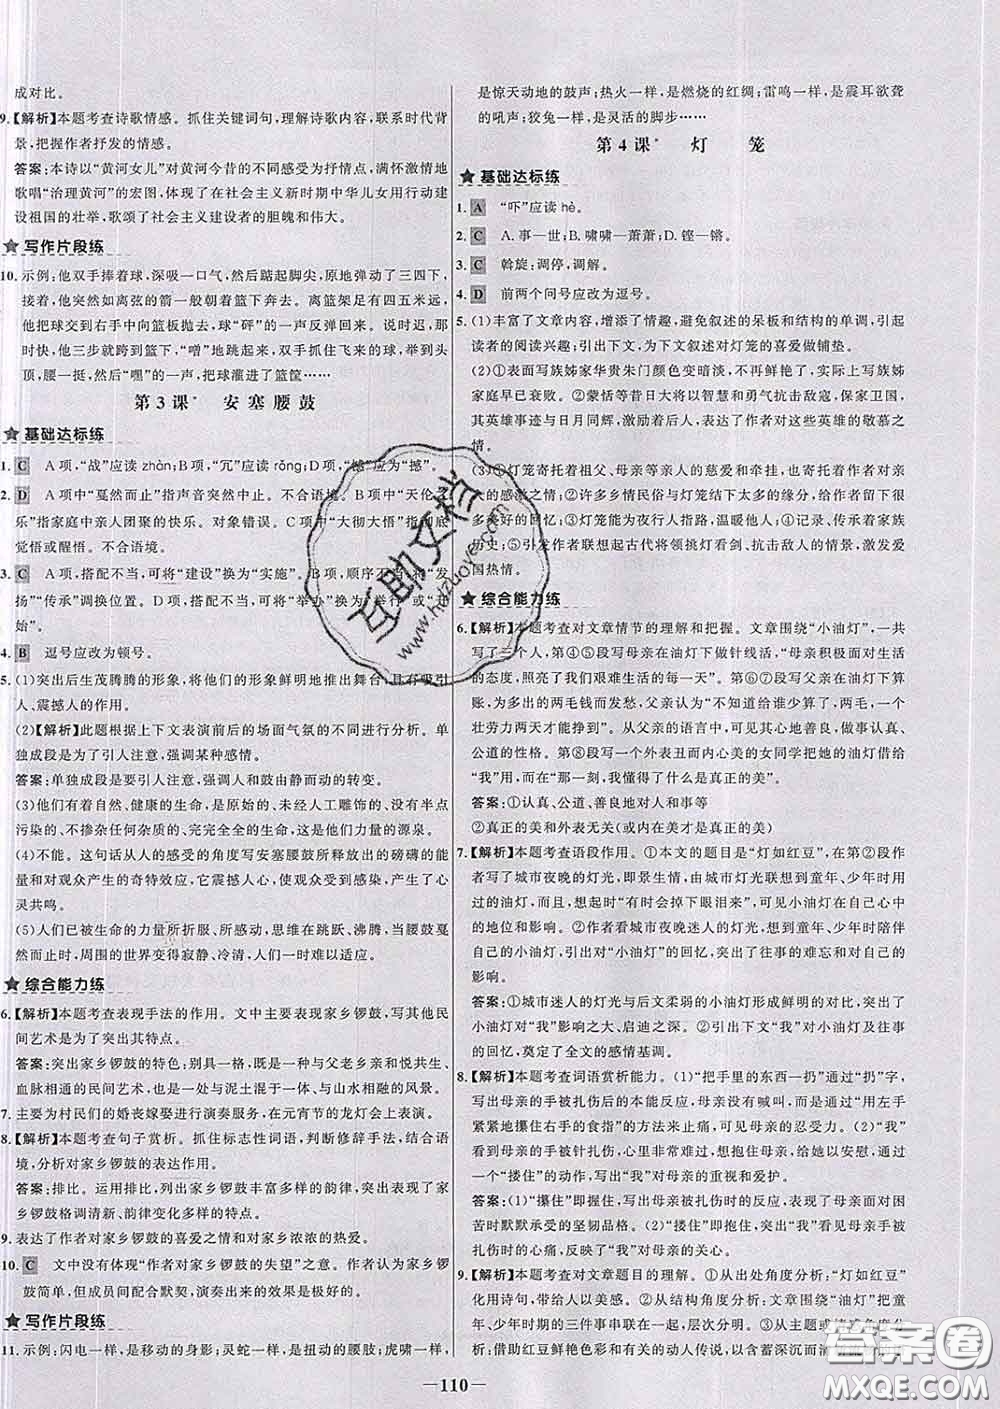 成对比。
9.【解析】本题考查诗歌情感。抓住关键词句,理解诗歌内容,联系时代背
景,把握作者抒发的情感。
答案:本诗以“黄河女儿”对黄河今昔的不同感受为抒情点,满怀激情地
歌唱“治理黄河”的宏图,体现了在社会主义新时期中华儿女用行动建
设祖国的壮举,歌颂了社会主义建设者的胆魄和伟大。
★写作片段练
10. 示例:他双手捧着球,深吸一口气,然后踮起脚尖,原地弹动了三四下,
接着,他突然如离弦的箭一般朝着篮下奔去。离篮架还有四五米远,
他把球交到右手中向篮板抛去,球“砰”的一声反弹回来。说时迟,那
时快,他一大步跨到篮下,“噌”地跳起来,双手抓住飞来的球,举过头
顶,腰一挺,然后“嘿”的一声,把球灌进了篮筐……
第 3 课* 安 塞 腰 鼓
★基础达标练
1. C A 项,“战”应读 zhàn;B 项,“冗”应读 rǒng;D 项,“憾”应为“撼”。
2. D A 项中“戛然而止”指声音突然中止。不合语境。B 项中“天伦之
乐”指家庭中亲人团聚的快乐。对象错误。C 项中“大彻大悟”指彻底
觉悟或醒悟。不合语境。
3. C A 项,搭配不当,可将“建设”换为“实施”。B 项,顺序不当,将“发
扬”“传承”调换位置。D 项,搭配不当,可将“举办”换为“举行”或“开
始”。
4. B 逗号应改为顿号。
5. (1)突出后生茂腾腾的形象,将他们的形象鲜明地推出舞台,具有吸引
人、震撼人的作用。
(2)【解析】此题根据上下文表演前后的场面气氛的不同进行分析。单
独成段是为了引人注意,强调某种感情。
答案:单独成段是要引人注意,强调人和鼓由静而动的转变。
(3)他们有着自然、健康的生命,是原始的、未经人工雕饰的、没有半点
污染的、不掺杂任何杂质的、完完全全的生命,这是他们力量的源泉。
(4)不能。这句话从人的感受的角度写安塞腰鼓所释放出的磅礴的能
量和对观众产生的奇特效应,它震撼人心,使观众受到感染,产生了心
灵共鸣。
(5)人们已被生命的力量所折服、所感动,思维在跳跃、沸腾,当腰鼓戛
然而止时,周围的世界变得寂静、冷清,人们一时难以适应。
★综合能力练
6.【解析】本题考查表现手法的作用。文中主要表现家乡锣鼓,写其他民
间艺术是为了突出其特点。
答案:突出家乡锣鼓的特色;别具一格,既是一种与父老乡亲和悦共生、
血脉相通的民间艺术,也是一处与泥土混一体、与山水相融的风景。
7. 主要为村民们的婚丧嫁娶进行演奏服务,在元宵节的龙灯会上表演。
8.【解析】本题考查句子赏析。抓住标志性词语,判断修辞手法,结合语
境,分析对家乡锣鼓的表达作用。
答案:排比。运用排比,列出家乡锣鼓丰富多样的韵律,突出表现了家
乡锣鼓格调清新、韵律变化多样的特点。
9. 表达了作者对家乡锣鼓的喜爱之情和对家乡浓浓的热爱。
10. C 文中没有体现“作者对家乡锣鼓的失望”之意。作者认为家乡锣
鼓简单,但成员间配合默契,演奏出来的效果是极好的。
★写作片段练
11. 示例:闪电一样,是移动的身影;灵蛇一样,是扭动的腰肢;虎啸一样,
是惊天动地的鼓声;热火一样,是燃烧的红绸;雷鸣一样,是震耳欲聋
的吼声;狡兔一样,是灵活的脚步……
第 4 课* 灯 笼
★基础达标练
1. A “吓”应读 hè。
2. C A. 事—世;B. 啸啸—萧萧;D. 铿—锵。
3. C 斡旋:调停,调解。
4. D 前两个问号应改为逗号。
5. (1)丰富了文章内容,增添了情趣,避免叙述的呆板和结构的单调,引起
读者的阅读兴趣;引出下文,为下文叙述对灯笼的喜爱做铺垫。
(2)①表面写族姊家华贵朱门颜色变暗淡,不再光鲜艳了,实际写族姊
家庭早已衰败。②蒙恬等昔日大将以智慧和勇气抗击敌寇,保家卫国,
其英雄事迹与日月同辉,激励着后人,表达了作者对这些英雄的敬慕之
情。
(3)①灯笼寄托着祖父、母亲等亲人的慈爱和牵挂,也寄托着作者对亲
人的感激之情;②许多乡情民俗与灯笼结下太多的缘分,给作者留下了
很多美好的回忆;③灯笼能为夜行人指路,温暖他人;④记录、传承家族
历史;⑤引发作者联想起古代将领挑灯看剑、抗击敌人的生活,激发爱
国热情。
★综合能力练
6.【解析】本题考查对文章情节的理解和把握。文章围绕“小油灯”,一共
写了三个人。第④⑤段写母亲在油灯下做针线活,“母亲影响我们生活
的态度,照亮着我们艰难生活的每一天”。第⑥⑦段写父亲在油灯下算
账,多出来的两毛钱而发愁,父亲认为“不知道给谁少算了,两毛,一个
壮劳力两天才能挣到”。从父亲的语言中,可以见其心地善良、做事认真、
公道的性格。第⑧段写一个外表丑而内心美的女同学把她的油灯借给
“我”用,而“在那一刻,我懂得了什么是真正的美”。
答案:①认真、公道、善良地对人和事等
②真正的美和外表无关(或内在美才是真正的美)
7.【解析】本题考查语段作用。①本文的题目是“灯如红豆”,在第②段作
者写了城市夜晚的灯光,即景生情,由城市灯光联想到童年、少年时用
过的油灯,而且感受到“有时会掉下眼泪来”,可见小油灯在作者心中
的地位和影响。②作者看城市夜晚迷人的灯光,想到童年、少年时的生
活,引出下文对“小油灯”的回忆,突出了作者对往事的难忘和对自己的
影响。
答案:①城市迷人的灯光与后文柔弱的小油灯形成鲜明的对比,突出
小油灯对“我”影响之大、启迪之深。②引出下文“我”对小油灯及往事
的回忆,奠定了全文的感情基调。
8.【解析】本题考查词语赏析能力。(1)“把手里的东西一扔”通过“扔”字,
写出母亲被针扎到手后的本能反应,极其生动传神。同时,接“用左手
紧紧地攥住右手的食指”的方式来止痛,可见母亲的忍受力。(2)“我”
看到母亲的手被针扎伤,心里非常难过,想抱住母亲,给她以安慰,
一个“搂住”的动作,写出“我”对母亲的重视和爱护。
答案:(1)“攥住”即握住,写出母亲被扎伤时的反应,表现了母亲在面对困
苦时默默承受的坚韧品格。(2)“搂住”即抱住,写出“我”看见母亲手被
扎伤时的心痛,也突出“我”对母亲的关心。
9.【解析】本题考查对文章题目的理解。①从出处角度分析:“灯如红豆”
化用诗句,带给人以美感。②从结构角度分析:文章围绕“油灯”,将童
年、少年时期的三件事串联在一起。③从主题或情感角度分
析:借助红豆鲜艳色彩和动人的传说,以含蓄深沉而
—110—
互助文档
www.hdzuoye.com
答案圈
MXQE.COM